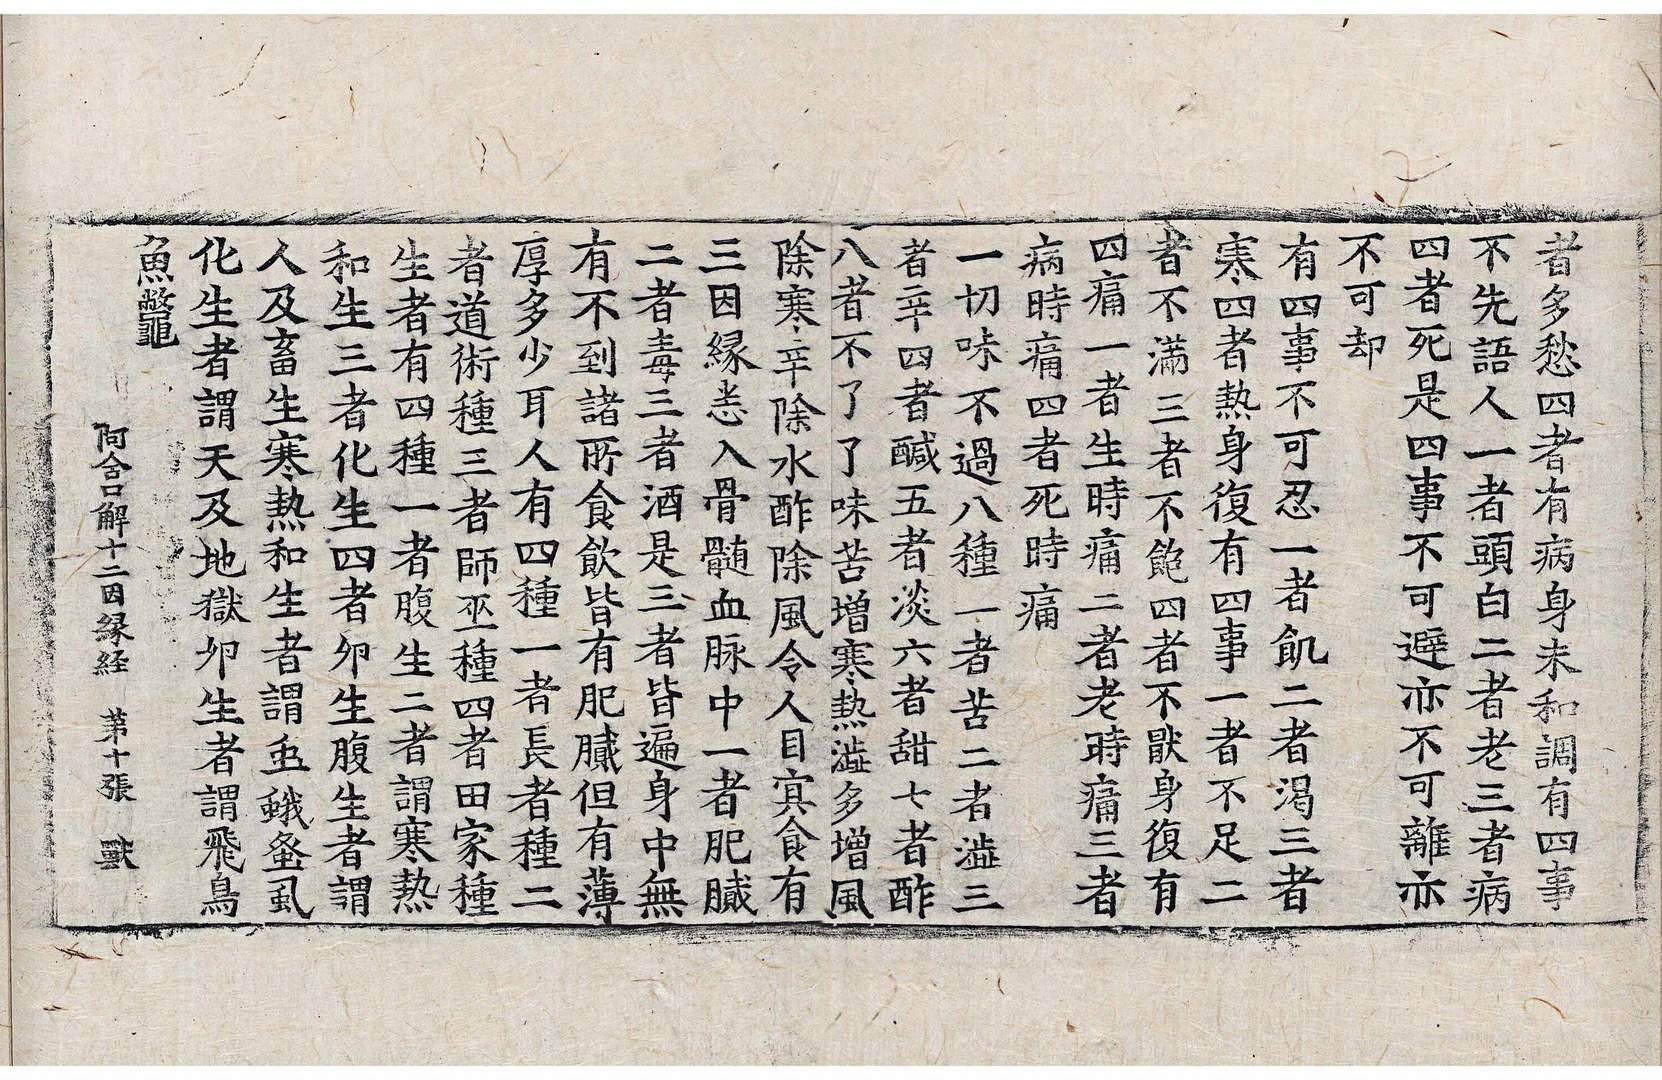 者多愁四者有病身未和調有四事
不先語人一者頭白二者老三者病
四者死是四事不可避亦不可離亦
不可却
有四事不可忍一者飢二者渴三者
寒四者熱身復有四事一者不足二
者不滿三者不飽四者不猒身復有
四痛一者生時痛二者老時痛三者
病時痛四者死時痛
一切味不過八種一者苦二者澁三
者辛四者醎五者淡六者甜七者酢
八者不了了味苦增寒熱澁多增風
除寒辛除水酢除風令人目㝠食有
三因緣恙入骨髓血脉中一者肥膩
二者毒三者酒是三者皆遍身中無
有不到諸所食飲皆有肥膩但有薄
厚多少耳人有四種一者長者種二
者道術種三者師巫種四者田家種
生者有四種一者腹生二者謂寒熱
和生三者化生四者卵生腹生者謂
人及畜生寒熱和生者謂虫蛾蚤虱
化生者謂天及地獄卵生者謂飛鳥
魚鼈
阿含口解十二因緣経 第十張 獸